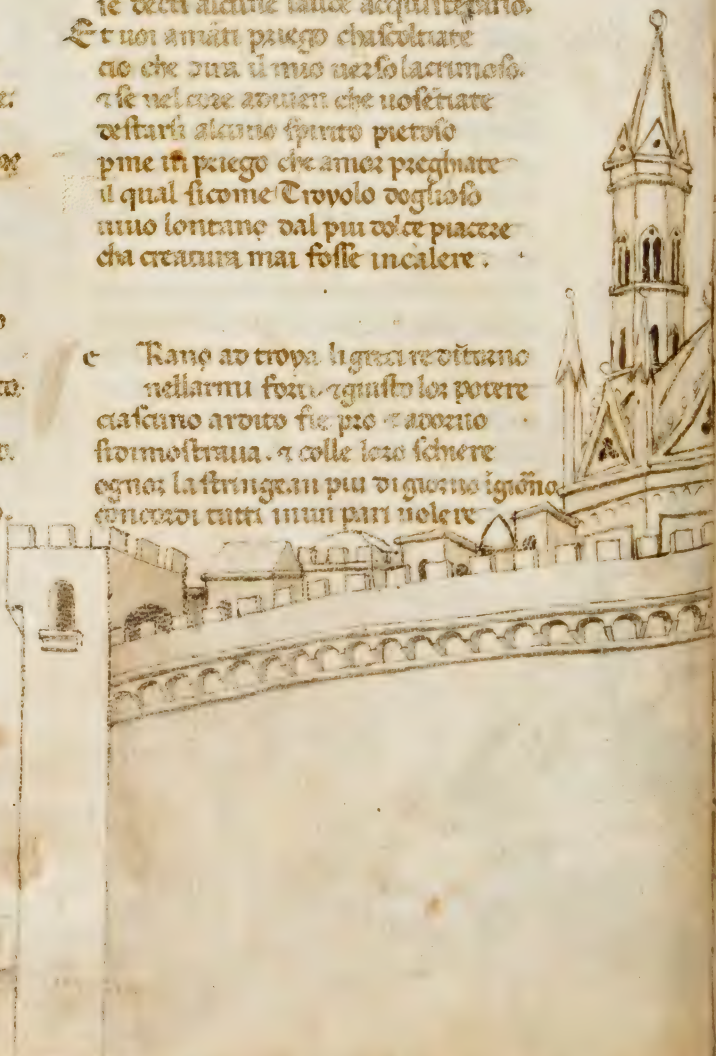 Et uoi amāti priego chascoltiate
cio che dira il mio uerso lacrimoso.
⁊ se nel core aduien che uo sētiate
destarsi alcuno spirito pietoso
p me ui priego che amor preghiate
il qual sicome Troyolo doglioso
uiuo lontano dal piu dolce piacere
cha creatura mai fosse in calere.
e Rano ad troya li greci re dīturno
nellarmi forti ⁊ giusto lor potere
ciascuno ardito fie pro ⁊ adorno
si dimostraua. ⁊ colle loro schiere
ognor la stringean piu di giorno ī giōno
concordi tutti in un pari uolere